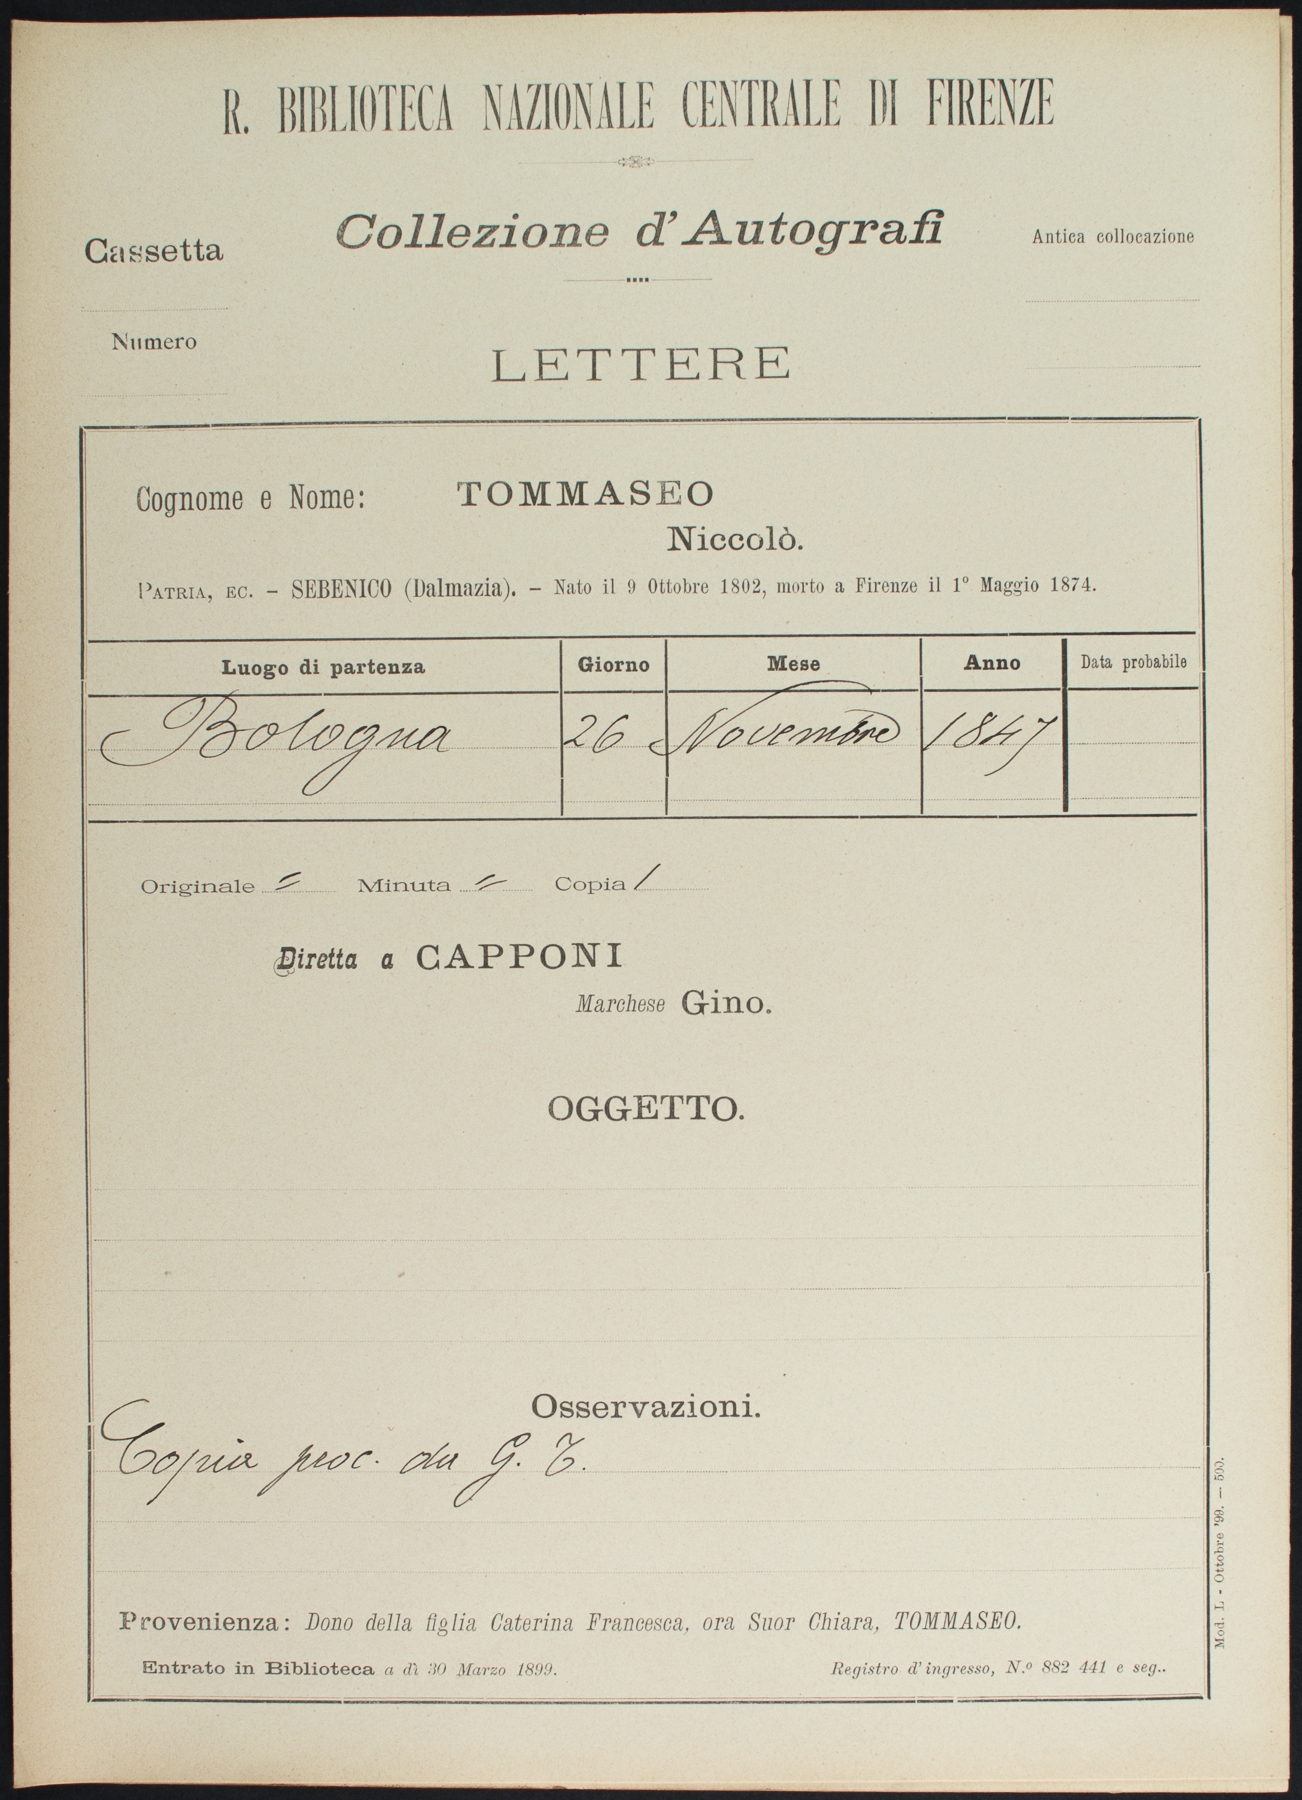 R. BIBLIOTECA NAZIONALE CENTRALE DI FIRENZE
Collezione d'Autografi
Cassetta
Antica collocazione
Numero
LETTERE
Cognome e Nome: TOMMASEO
Niccolò.
PATRIA, EC. – SEBENICO (Dalmazia). – Nato il 9 Ottobre 1802, morto a Firenze il 1º Maggio 1874.
Luogo di partenza Giorno Mese Anno Data probabile
Bologna 26 Novembre 1847
Originale = Minuta = Copia /
Diretta a CAPPONI
Marchese Gino.
OGGETTO.
Osservazioni.
Copia proc. da G. T.
Provenienza: Dono della figlia Caterina Francesca, ora Suor Chiara, TOMMASEO.
Entrato in Biblioteca a dì 30 Marzo 1899. Registro d'ingresso, N.º 882 441 e seg..
Mod. L - Ottobre '99. — 500.